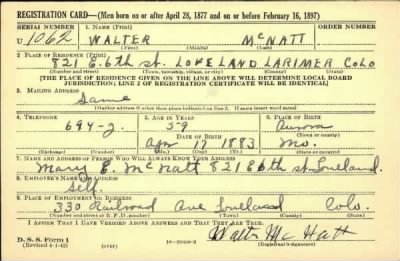 REGISTRATION CARD—(Men born on or after April 28, 1877 and on or before February 16, 1897)
SERIAL NUMBER 1. NAME (Print) ORDER NUMBER
U 1062 WALTER McNATT
(First) (Middle) (Last)
2. PLACE OF RESIDENCE (Print)
821 E. 6th st. LOVELAND LARIMER COLO
(Number and street) (Town, township, village, or city) (County) (State)
[THE PLACE OF RESIDENCE GIVEN ON THE LINE ABOVE WILL DETERMINE LOCAL BOARD
JURISDICTION; LINE 2 OF REGISTRATION CERTIFICATE WILL BE IDENTICAL]
3. MAILING ADDRESS
Same
[Mailing address if other than place indicated on line 2. If same insert word same]
4. TELEPHONE 5. AGE IN YEARS 6. PLACE OF BIRTH
694-J. 59 Aurora
DATE OF BIRTH (Town or county)
Apr 17 1883 Mo.
(Exchange) (Number) (Mo.) (Day) (Yr.) (State or country)
7. NAME AND ADDRESS OF PERSON WHO WILL ALWAYS KNOW YOUR ADDRESS
Mary E. McNatt 821 E 6th st. Loveland.
8. EMPLOYER'S NAME AND ADDRESS
Self.
9. PLACE OF EMPLOYMENT OR BUSINESS
330 Railroad Ave Loveland Colo.
(Number and street or R. F. D. number) (Town) (County) (State)
I AFFIRM THAT I HAVE VERIFIED ABOVE ANSWERS AND THAT THEY ARE TRUE.
D. S. S. Form 1
(Revised 4-1-42) (over) Walter McNatt
(Registrant's signature)